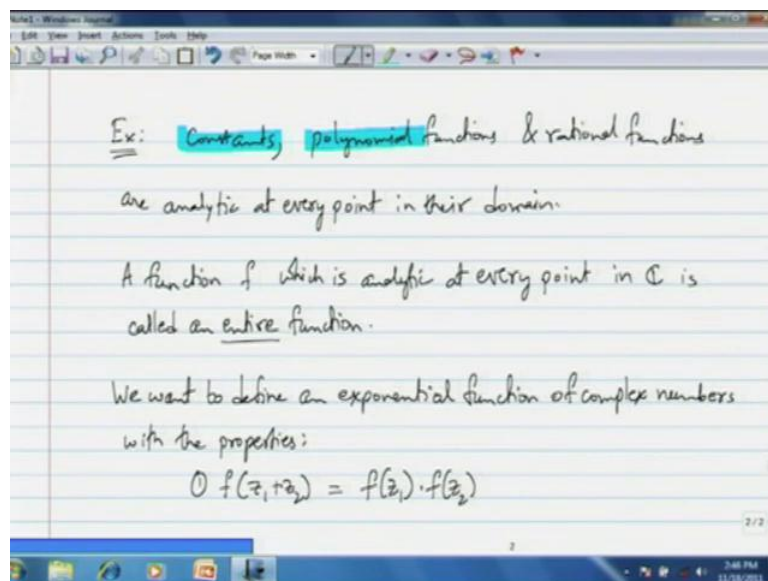 Note1 - Windows Journal
Edit View Insert Actions Tools Help
Page Width
Ex: Constants, polynomial functions & rational functions
are analytic at every point in their domain.
A function f which is analytic at every point in ℂ is
called an entire function.
We want to define an exponential function of complex numbers
with the properties:
① f(z₁+z₂) = f(z₁)·f(z₂)
2/2
2
2:48 PM
11/18/2011